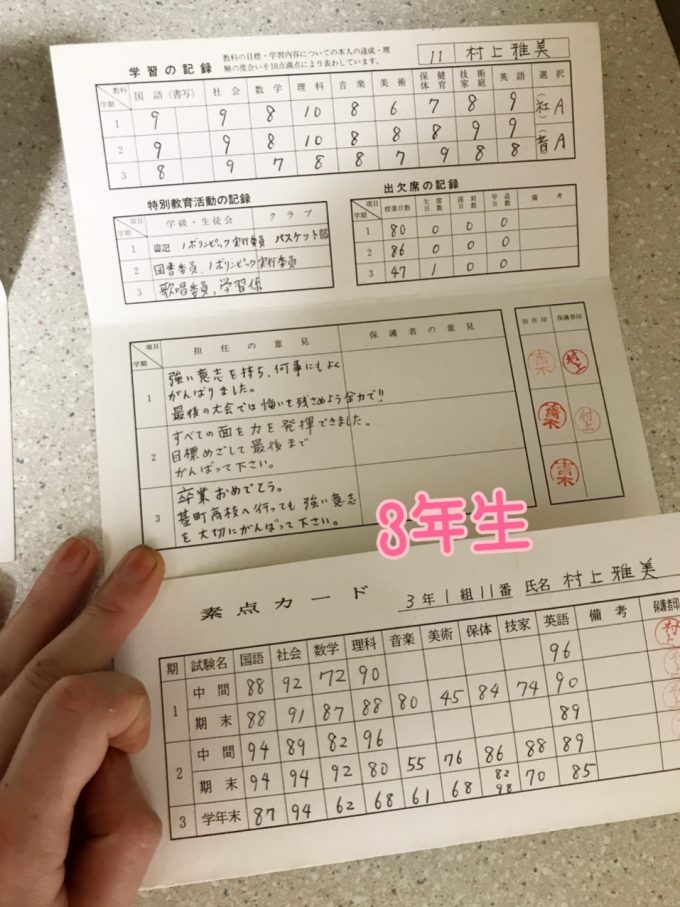 学習の記録
教科の目標・学習内容についての本人の達成・理
解の度合いを10点満点により表わしています。
11 村上雅美
教科 学期 国語 (書写) 社会 数学 理科 音楽 美術 保健体育 技術家庭 英語 選択
1 9 9 8 10 8 6 7 8 9 (社) A
2 9 9 8 10 8 8 8 9 9 (音) A
3 8 9 7 8 8 7 9 8 8
特別教育活動の記録
項目 学期 学級・生徒会 クラブ
1 書記 ノボリンピック実行委員 バスケット部
2 図書委員,ノボリンピック実行委員
3 歌唱委員,学習係
出欠席の記録
項目 学期 授業日数 欠席日数 遅刻日数 早退日数 備考
1 80 0 0 0
2 86 0 0 0
3 47 1 0 0
項目 学期 担任の意見 保護者の意見
担任印 保護者印
1 強い意志を持ち,何事にもよく
がんばりました。
最後の大会では悔いを残さぬよう全力で!!
村上
2 すべての面を力を発揮できました。
目標めざして最後まで
がんばって下さい。
村上
3 卒業おめでとう。
基町高校へ行っても強い意志
を大切にがんばって下さい。
3年生
素点カード
3年1組11番 氏名 村上雅美
期 試験名 国語 社会 数学 理科 音楽 美術 保体 技家 英語 備考 保護者印
1 中間 88 92 72 90 96
期末 88 91 87 88 80 45 84 74 90
2 中間 94 89 82 96 89
期末 94 94 92 80 55 76 86 88 89
3 学年末 87 94 62 68 61 68 82 98 70 85